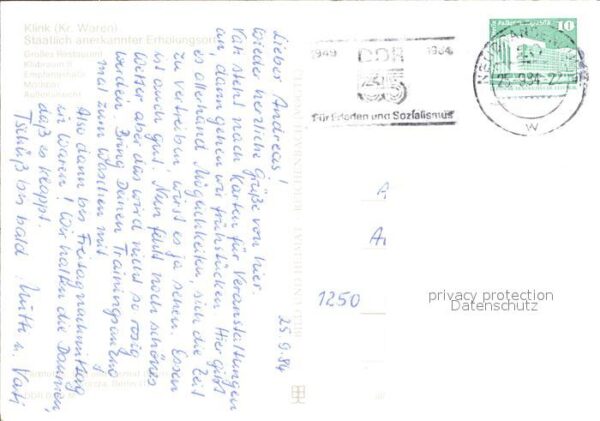 Klink (Kr. Waren)
Staatlich anerkannter Erholungsort
Großes Restaurant
Klubraum II
Empfangshalle
Außenansicht
25.9.84
Lieber Andreas!
Wieder herzliche Grüße von hier.
Vati steht nach Karten für Veranstaltungen
an, dann gehen wir frühstücken. Hier gibt
es allerhand Möglichkeiten, sich die Zeit
zu vertreiben, wirst es ja sehen. Essen
ist auch gut. Nun fehlt noch schönes
Wetter aber das wird nicht so rosig
werden. Bring Deinen Trainingsanzug
mal zum Waschen mit
Also dann bis Freitagnachmittag
in Waren! Wir halten die Daumen,
daß es klappt.
Tschüß bis bald Mutti u. Vati
1949 DDR 1984
35
Für Frieden und Sozialismus
10
25.9.84
W
A
1250
privacy protection
Datenschutz